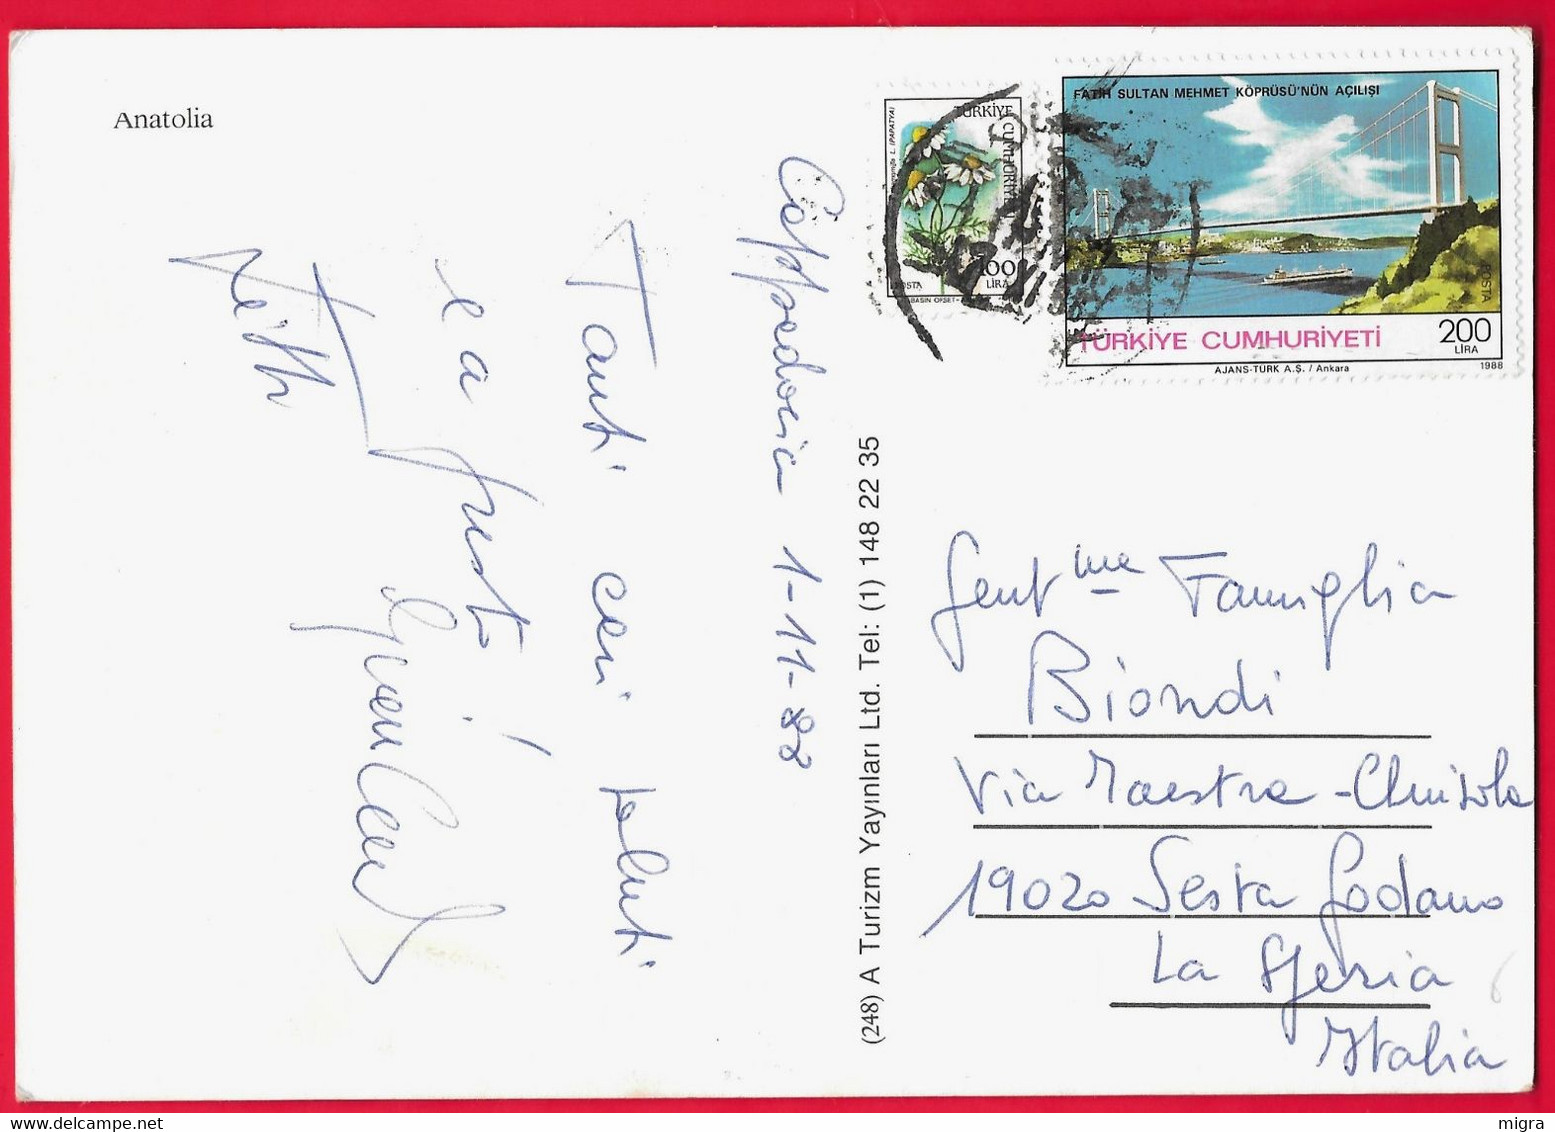 Anatolia
Cappadocia 1-11-88
Tanti cari saluti
e a presto!
FATİH SULTAN MEHMET KÖPRÜSÜ'NÜN AÇILIŞI
TÜRKİYE CUMHURİYETİ
200
LİRA
POSTA
AJANS-TÜRK A.Ş. / Ankara
1988
TÜRKİYE CUMHURİYETİ
L. (PAPATYA)
POSTA
100
LİRA
BASIN OFSET
(248) A Turizm Yayınları Ltd. Tel: (1) 148 22 35
Gent.me Famiglia
Biondi
Via Maestra - Chiusola
19020 Sesta Godano
La Spezia
Italia
migra